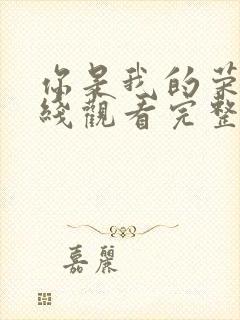 你是我的荣
綫觀看完整
嘉麗